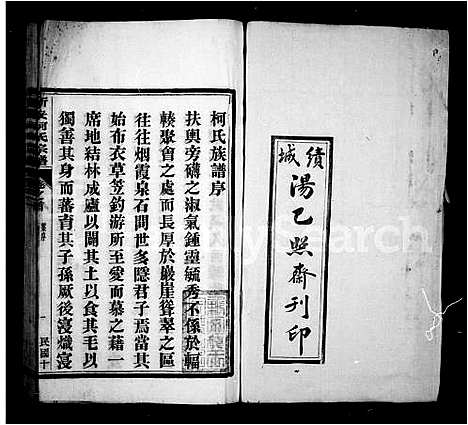 績城
湯乙照齋刊印
柯氏族譜序
扶輿旁礴之淑氣鍾靈毓秀不係於輻
輳聚會之處而長厚於巖崖聳翠之區
往往烟霞泉石間世多隱君子焉當其
始布衣草笠釣游所至愛而慕之藉一
席地結林成廬以闢其土以食其毛以
獨善其身而蕃育其子孫厥後寖熾寖
柯氏宗譜
一
民國十